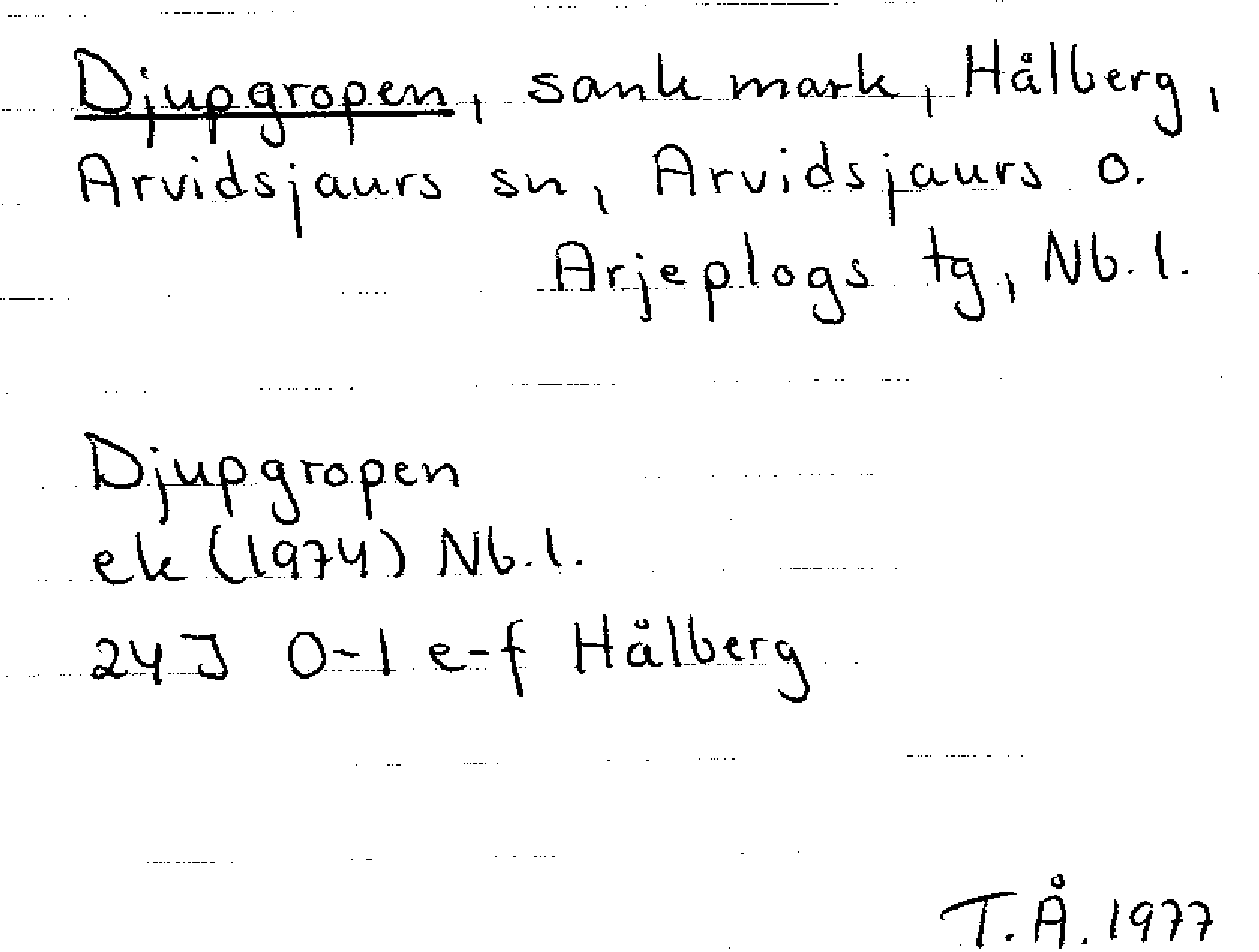 Djupgropen, sank mark, Hålberg,
Arvidsjaurs sn, Arvidsjaurs o.
Arjeplogs tg, Nb. l.
Djupgropen
ek (1974) Nb. l.
24J 0-1 e-f Hålberg
T.Å. 1977